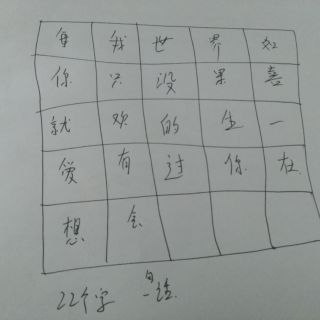 每 我 世 界 如
你 只 没 果 喜
就 欢 的 生 一
爱 有 过 你 在
想 会
22个字